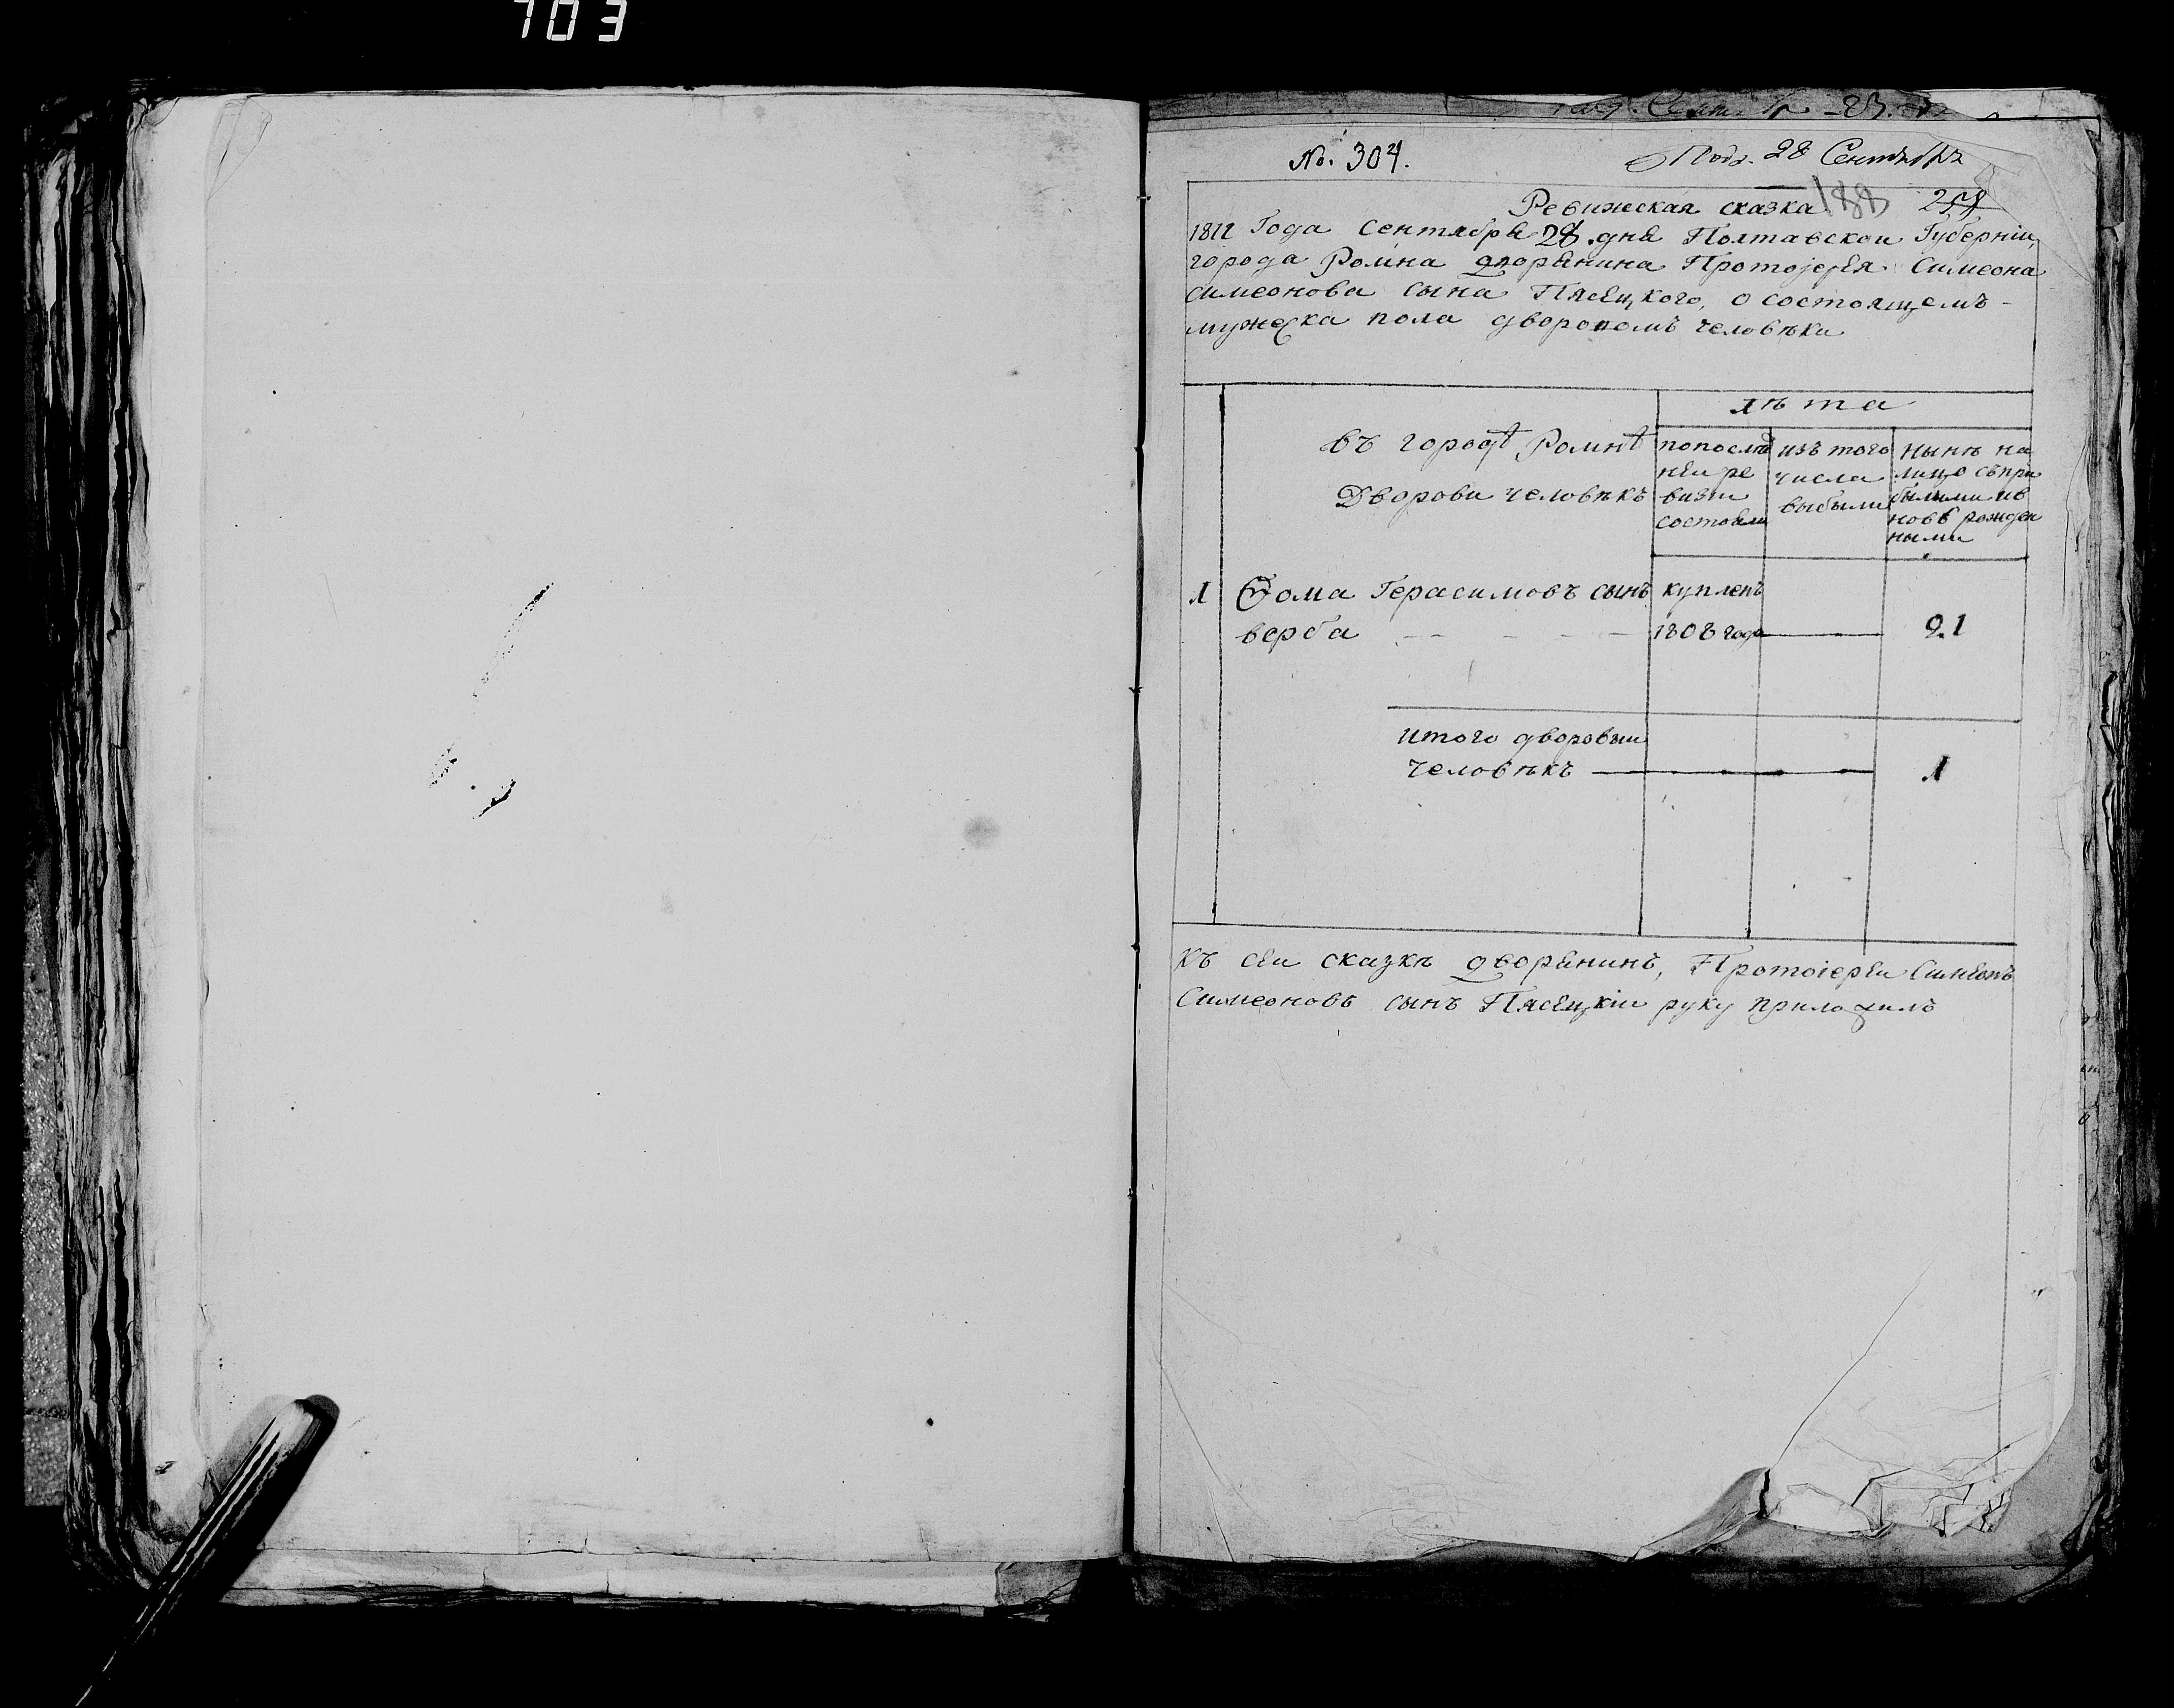 703
No. 304.
Подо. 28 Сентября
Ревижская сказка 188 258
1811 Года Сентября 28 дня Полтавской Губернiи,
города Ромна дворянина Протоiерея Симеона
Симеонова сына Пясецкого, о состоящемъ -
мужеска пола дворовомъ человѣка
лѣта
въ городѣ Ромнѣ
Дворови человѣкъ
попослѣд
ней ре
визiи
состояли
изъ того
числа
выбыли
нынѣ на
лицо съпри
былыми ив
новѣ рожден
ными
1 Ѳома Герасимовъ сынъ куплень
верба 1808 года 21
итого дворовыи
человѣкъ 1
Къ сеи сказкѣ дворянинъ, Протоiереи Симеонъ
Симеоновъ сынъ Пясецкiи руку приложилъ